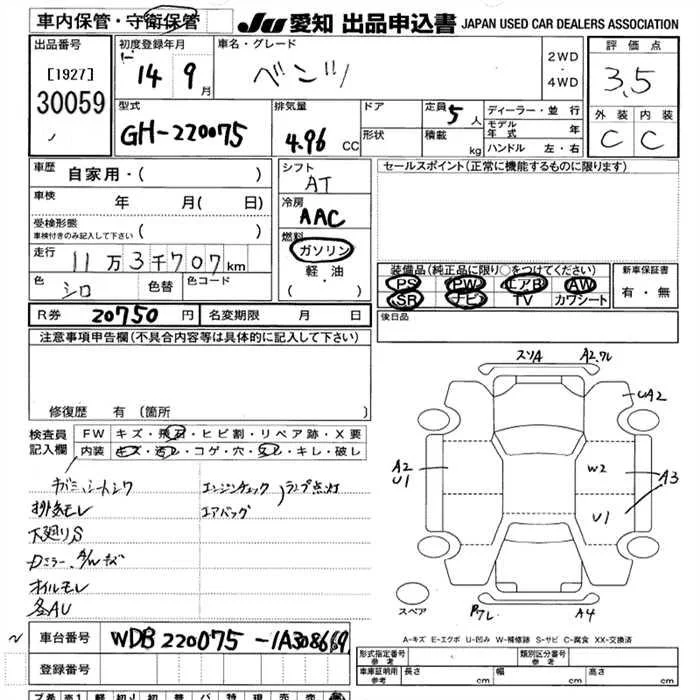 車内保管・守衛保管 JU 愛知 出品申込書 JAPAN USED CAR DEALERS ASSOCIATION
出品番号
[1927]
30059
初度登録年月
14 9月
車名・グレード
ベンツ
2WD
・
4WD
評価点
3.5
外装 内装
C C
型式
GH-220075
排気量
4.96 CC
ドア
形状
定員 5 人
積載 kg
ディーラー・並行
モデル年式 年
ハンドル 左・右
車歴
自家用・( )
車検 年 月( 日)
受検形態
車検付きのみ記入して下さい ( )
走行 11万3千707km
色 シロ 色替 色コード
シフト
AT
冷房
AAC
燃料
ガソリン
軽・油
( ・ )
セールスポイント(正常に機能するものに限ります)
装備品(純正品に限り○をつけてください)
PS PW エアB AW
SR ナビ TV カワシート
新車保証書
有・無
後日品
R券 20750 円 名変期限 月 日
注意事項申告欄(不具合内容等は具体的に記入して下さい)
修復歴 有 (箇所 )
検査員
記入欄
FW キズ・飛石・ヒビ割・リペア跡・X要
内装 キズ・汚レ・コゲ・穴・欠レ・キレ・破レ
エンジンチェック ランプ点灯
エアバッグ
排気モレ
下廻りS
Dミラー、A/Wキズ
オイルモレ
各AU
スソA A2.ワレ
UA2
A2
U1
W2
A3
U1
スペア
Pワレ A4
A-キズ E-エクボ U-凹み W-補修跡 S-サビ C-腐食 XX-交換済
車台番号 WDB220075-1A308669
登録番号
形式指定番号
参考
類別区分番号
参考
車庫証明用
参考
長さ cm 幅 cm 高さ cm